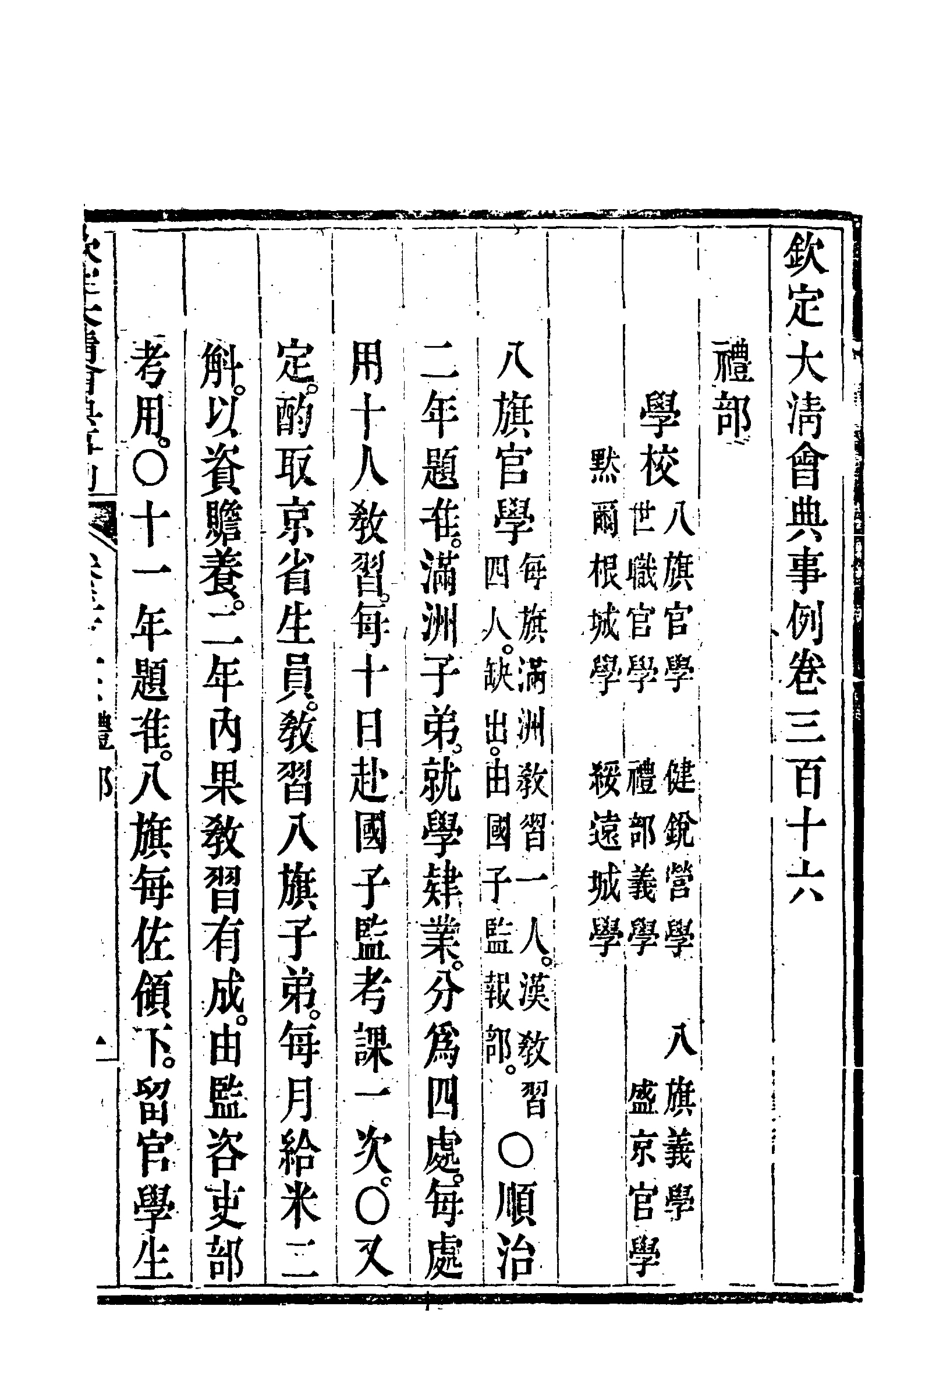 欽定大清會典事例卷三百十六
禮部
學校八旗官學　健銳營學　八旗義學
世職官學　禮部義學　盛京官學
默爾根城學　綏遠城學
八旗官學每旗滿洲敎習一人。漢敎習
四人。缺出。由國子監報部。〇順治
二年題准。滿洲子弟。就學肄業。分爲四處。每處
用十人敎習。每十日赴國子監考課一次。〇又
定。酌取京省生員。敎習八旗子弟。每月給米二
斛。以資贍養。二年內果敎習有成。由監咨吏部
考用。〇十一年題准。八旗每佐領下。留官學生